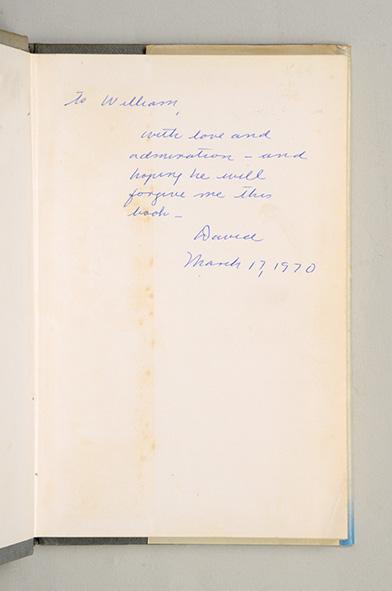 to William,
with love and
admiration – and
hoping he will
forgive me this
book –
David
March 17, 1970